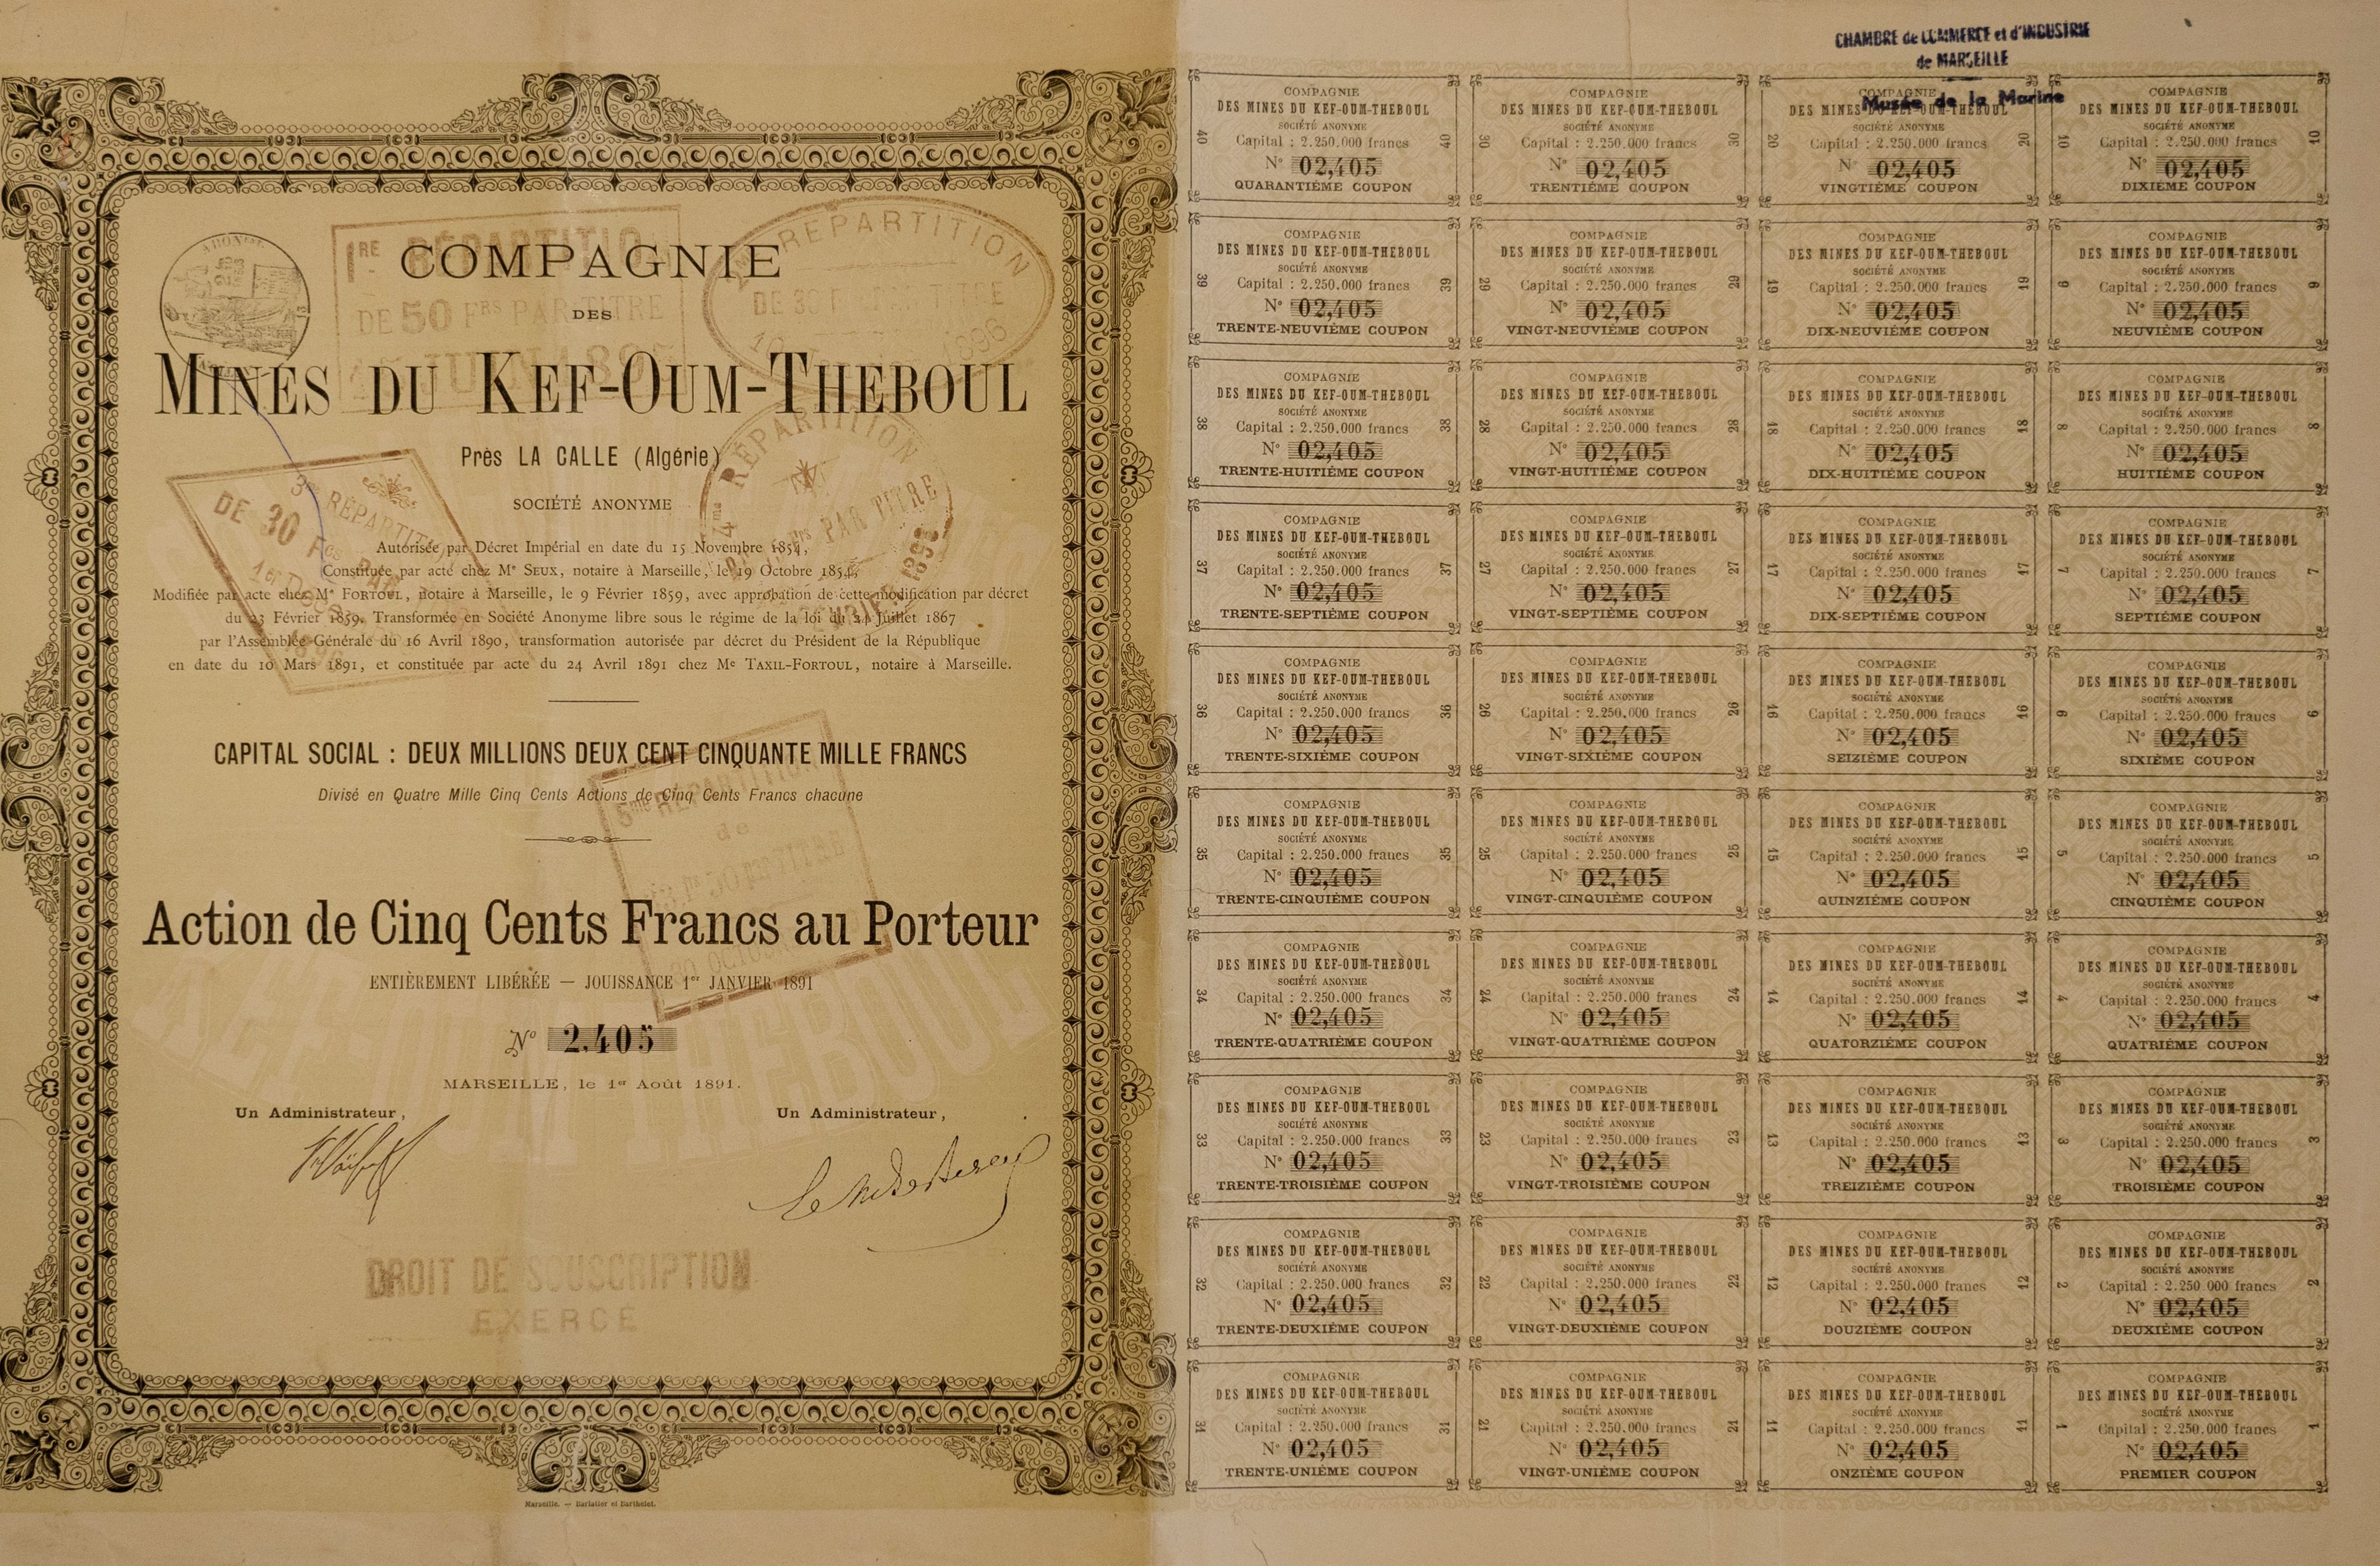 COMPAGNIE
DES
MINES DU KEF-OUM-THEBOUL
Près LA CALLE (Algérie)
SOCIÉTÉ ANONYME
Autorisée par Décret Impérial en date du 15 Novembre 1854,
Constituée par acte chez Me SEUX, notaire à Marseille, le 19 Octobre 1854,
Modifiée par acte chez Me FORTOUL, notaire à Marseille, le 9 Février 1859, avec approbation de cette modification par décret
du 23 Février 1859. Transformée en Société Anonyme libre sous le régime de la loi du 24 Juillet 1867
par l'Assemblée Générale du 16 Avril 1890, transformation autorisée par décret du Président de la République
en date du 10 Mars 1891, et constituée par acte du 24 Avril 1891 chez Me TAXIL-FORTOUL, notaire à Marseille.
CAPITAL SOCIAL : DEUX MILLIONS DEUX CENT CINQUANTE MILLE FRANCS
Divisé en Quatre Mille Cinq Cents Actions de Cinq Cents Francs chacune
Action de Cinq Cents Francs au Porteur
ENTIÈREMENT LIBÉRÉE — JOUISSANCE 1er JANVIER 1891
No 2.405
MARSEILLE, le 1er Août 1891.
Un Administrateur,
Un Administrateur,
DROIT DE SOUSCRIPTION
EXERCÉ
Marseille. — Barlatier et Barthelet.
1RE RÉPARTITION
DE 50 FRS PAR TITRE
RÉPARTITION
3me RÉPARTITION
DE 30 Fcs
4me RÉPARTITION
PAR TITRE
5me RÉPARTITION
de
CHAMBRE de COMMERCE et d'INDUSTRIE
de MARSEILLE
Musée de la Marine
COMPAGNIE
DES MINES DU KEF-OUM-THEBOUL
SOCIÉTÉ ANONYME
40 Capital : 2.250.000 francs 40
No 02,405
QUARANTIÈME COUPON
COMPAGNIE
DES MINES DU KEF-OUM-THEBOUL
SOCIÉTÉ ANONYME
30 Capital : 2.250.000 francs 30
No 02,405
TRENTIÈME COUPON
COMPAGNIE
DES MINES DU KEF-OUM-THEBOUL
SOCIÉTÉ ANONYME
20 Capital : 2.250.000 francs 20
No 02,405
VINGTIÈME COUPON
COMPAGNIE
DES MINES DU KEF-OUM-THEBOUL
SOCIÉTÉ ANONYME
10 Capital : 2.250.000 francs 10
No 02,405
DIXIÈME COUPON
COMPAGNIE
DES MINES DU KEF-OUM-THEBOUL
SOCIÉTÉ ANONYME
39 Capital : 2.250.000 francs 39
No 02,405
TRENTE-NEUVIÈME COUPON
COMPAGNIE
DES MINES DU KEF-OUM-THEBOUL
SOCIÉTÉ ANONYME
29 Capital : 2.250.000 francs 29
No 02,405
VINGT-NEUVIÈME COUPON
COMPAGNIE
DES MINES DU KEF-OUM-THEBOUL
SOCIÉTÉ ANONYME
19 Capital : 2.250.000 francs 19
No 02,405
DIX-NEUVIÈME COUPON
COMPAGNIE
DES MINES DU KEF-OUM-THEBOUL
SOCIÉTÉ ANONYME
9 Capital : 2.250.000 francs 9
No 02,405
NEUVIÈME COUPON
COMPAGNIE
DES MINES DU KEF-OUM-THEBOUL
SOCIÉTÉ ANONYME
38 Capital : 2.250.000 francs 38
No 02,405
TRENTE-HUITIÈME COUPON
COMPAGNIE
DES MINES DU KEF-OUM-THEBOUL
SOCIÉTÉ ANONYME
28 Capital : 2.250.000 francs 28
No 02,405
VINGT-HUITIÈME COUPON
COMPAGNIE
DES MINES DU KEF-OUM-THEBOUL
SOCIÉTÉ ANONYME
18 Capital : 2.250.000 francs 18
No 02,405
DIX-HUITIÈME COUPON
COMPAGNIE
DES MINES DU KEF-OUM-THEBOUL
SOCIÉTÉ ANONYME
8 Capital : 2.250.000 francs 8
No 02,405
HUITIÈME COUPON
COMPAGNIE
DES MINES DU KEF-OUM-THEBOUL
SOCIÉTÉ ANONYME
37 Capital : 2.250.000 francs 37
No 02,405
TRENTE-SEPTIÈME COUPON
COMPAGNIE
DES MINES DU KEF-OUM-THEBOUL
SOCIÉTÉ ANONYME
27 Capital : 2.250.000 francs 27
No 02,405
VINGT-SEPTIÈME COUPON
COMPAGNIE
DES MINES DU KEF-OUM-THEBOUL
SOCIÉTÉ ANONYME
17 Capital : 2.250.000 francs 17
No 02,405
DIX-SEPTIÈME COUPON
COMPAGNIE
DES MINES DU KEF-OUM-THEBOUL
SOCIÉTÉ ANONYME
7 Capital : 2.250.000 francs 7
No 02,405
SEPTIÈME COUPON
COMPAGNIE
DES MINES DU KEF-OUM-THEBOUL
SOCIÉTÉ ANONYME
36 Capital : 2.250.000 francs 36
No 02,405
TRENTE-SIXIÈME COUPON
COMPAGNIE
DES MINES DU KEF-OUM-THEBOUL
SOCIÉTÉ ANONYME
26 Capital : 2.250.000 francs 26
No 02,405
VINGT-SIXIÈME COUPON
COMPAGNIE
DES MINES DU KEF-OUM-THEBOUL
SOCIÉTÉ ANONYME
16 Capital : 2.250.000 francs 16
No 02,405
SEIZIÈME COUPON
COMPAGNIE
DES MINES DU KEF-OUM-THEBOUL
SOCIÉTÉ ANONYME
6 Capital : 2.250.000 francs 6
No 02,405
SIXIÈME COUPON
COMPAGNIE
DES MINES DU KEF-OUM-THEBOUL
SOCIÉTÉ ANONYME
35 Capital : 2.250.000 francs 35
No 02,405
TRENTE-CINQUIÈME COUPON
COMPAGNIE
DES MINES DU KEF-OUM-THEBOUL
SOCIÉTÉ ANONYME
25 Capital : 2.250.000 francs 25
No 02,405
VINGT-CINQUIÈME COUPON
COMPAGNIE
DES MINES DU KEF-OUM-THEBOUL
SOCIÉTÉ ANONYME
15 Capital : 2.250.000 francs 15
No 02,405
QUINZIÈME COUPON
COMPAGNIE
DES MINES DU KEF-OUM-THEBOUL
SOCIÉTÉ ANONYME
5 Capital : 2.250.000 francs 5
No 02,405
CINQUIÈME COUPON
COMPAGNIE
DES MINES DU KEF-OUM-THEBOUL
SOCIÉTÉ ANONYME
34 Capital : 2.250.000 francs 34
No 02,405
TRENTE-QUATRIÈME COUPON
COMPAGNIE
DES MINES DU KEF-OUM-THEBOUL
SOCIÉTÉ ANONYME
24 Capital : 2.250.000 francs 24
No 02,405
VINGT-QUATRIÈME COUPON
COMPAGNIE
DES MINES DU KEF-OUM-THEBOUL
SOCIÉTÉ ANONYME
14 Capital : 2.250.000 francs 14
No 02,405
QUATORZIÈME COUPON
COMPAGNIE
DES MINES DU KEF-OUM-THEBOUL
SOCIÉTÉ ANONYME
4 Capital : 2.250.000 francs 4
No 02,405
QUATRIÈME COUPON
COMPAGNIE
DES MINES DU KEF-OUM-THEBOUL
SOCIÉTÉ ANONYME
33 Capital : 2.250.000 francs 33
No 02,405
TRENTE-TROISIÈME COUPON
COMPAGNIE
DES MINES DU KEF-OUM-THEBOUL
SOCIÉTÉ ANONYME
23 Capital : 2.250.000 francs 23
No 02,405
VINGT-TROISIÈME COUPON
COMPAGNIE
DES MINES DU KEF-OUM-THEBOUL
SOCIÉTÉ ANONYME
13 Capital : 2.250.000 francs 13
No 02,405
TREIZIÈME COUPON
COMPAGNIE
DES MINES DU KEF-OUM-THEBOUL
SOCIÉTÉ ANONYME
3 Capital : 2.250.000 francs 3
No 02,405
TROISIÈME COUPON
COMPAGNIE
DES MINES DU KEF-OUM-THEBOUL
SOCIÉTÉ ANONYME
32 Capital : 2.250.000 francs 32
No 02,405
TRENTE-DEUXIÈME COUPON
COMPAGNIE
DES MINES DU KEF-OUM-THEBOUL
SOCIÉTÉ ANONYME
22 Capital : 2.250.000 francs 22
No 02,405
VINGT-DEUXIÈME COUPON
COMPAGNIE
DES MINES DU KEF-OUM-THEBOUL
SOCIÉTÉ ANONYME
12 Capital : 2.250.000 francs 12
No 02,405
DOUZIÈME COUPON
COMPAGNIE
DES MINES DU KEF-OUM-THEBOUL
SOCIÉTÉ ANONYME
2 Capital : 2.250 000 francs 2
No 02,405
DEUXIÈME COUPON
COMPAGNIE
DES MINES DU KEF-OUM-THEBOUL
SOCIÉTÉ ANONYME
31 Capital : 2.250.000 francs 31
No 02,405
TRENTE-UNIÈME COUPON
COMPAGNIE
DES MINES DU KEF-OUM-THEBOUL
SOCIÉTÉ ANONYME
21 Capital : 2.250.000 francs 21
No 02,405
VINGT-UNIÈME COUPON
COMPAGNIE
DES MINES DU KEF-OUM-THEBOUL
SOCIÉTÉ ANONYME
11 Capital : 2.250.000 francs 11
No 02,405
ONZIÈME COUPON
COMPAGNIE
DES MINES DU KEF-OUM-THEBOUL
SOCIÉTÉ ANONYME
1 Capital : 2.250.000 francs 1
No 02,405
PREMIER COUPON